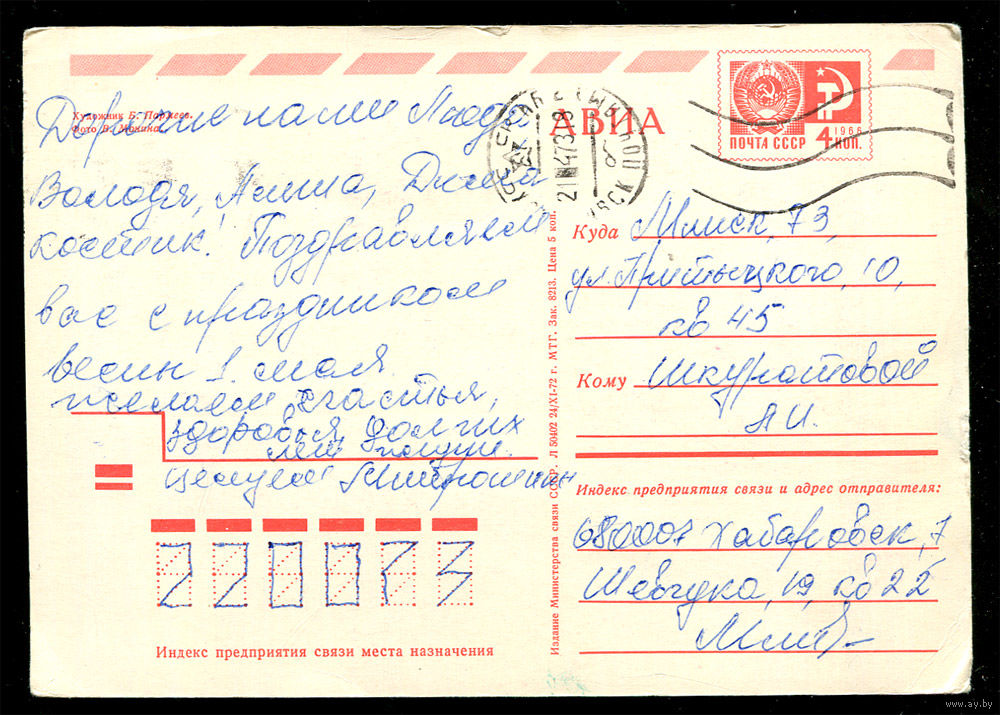 Художник Б. Паржеев.
Фото В. Монина.
Дорогие наши Люда
Володя, Алеша, Дима
Костик! Поздравляем
вас с праздником
весны 1 мая.
желаем счастья,
здоровья долгих
лет жизни.
целуем
Индекс предприятия связи места назначения
220073
Издание Министерства связи СССР. Л 50402 24/XI-72 г. МТГ. Зак. 8213. Цена 5 коп.
АВИА
ПОЧТА СССР 4 КОП.
1966
21 473 9
Куда Минск, 73,
ул. Притыцкого, 10,
кв 45
Кому Шкуратовой
Л И.
Индекс предприятия связи и адрес отправителя:
680007 Хабаровск, 7
Шевчука, 19, кв 22
www.ay.by